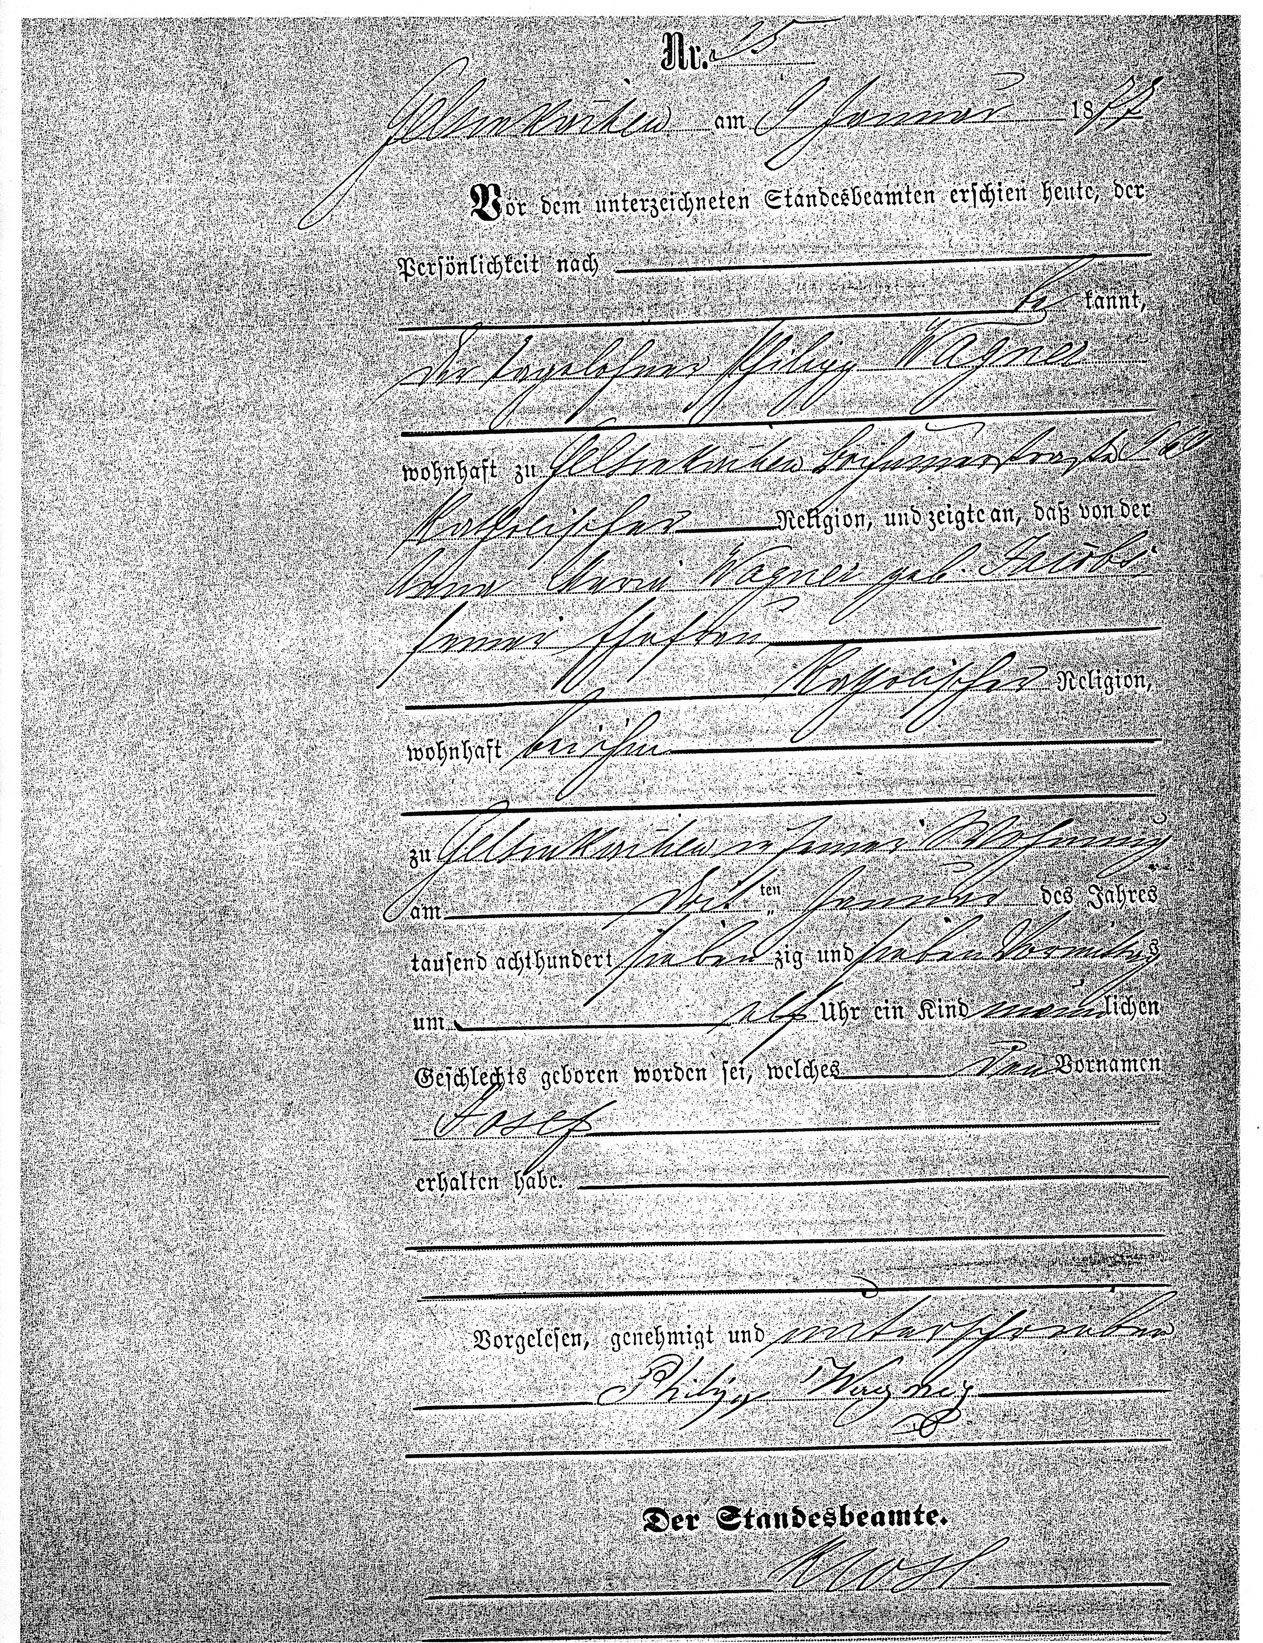 Nr. 15
Gelsenkirchen am 9 Januar 1877
Vor dem unterzeichneten Standesbeamten erschien heute, der
Persönlichkeit nach
be kannt,
der Tagelöhner Philipp Wagner
wohnhaft zu Gelsenkirchen
katholischer Religion, und zeigte an, daß von der
Anna Maria Wagner geb. Jacobs
seiner Ehefrau
katholischer Religion,
wohnhaft bei ihm
zu Gelsenkirchen in seiner Wohnung
am drit ten Januar des Jahres
tausend achthundert sieben zig und sieben Vormittags
um elf Uhr ein Kind männlichen
Geschlechts geboren worden sei, welches den Vornamen
Josef
erhalten habe.
Vorgelesen, genehmigt und unterschrieben
Philipp Wagner
Der Standesbeamte.